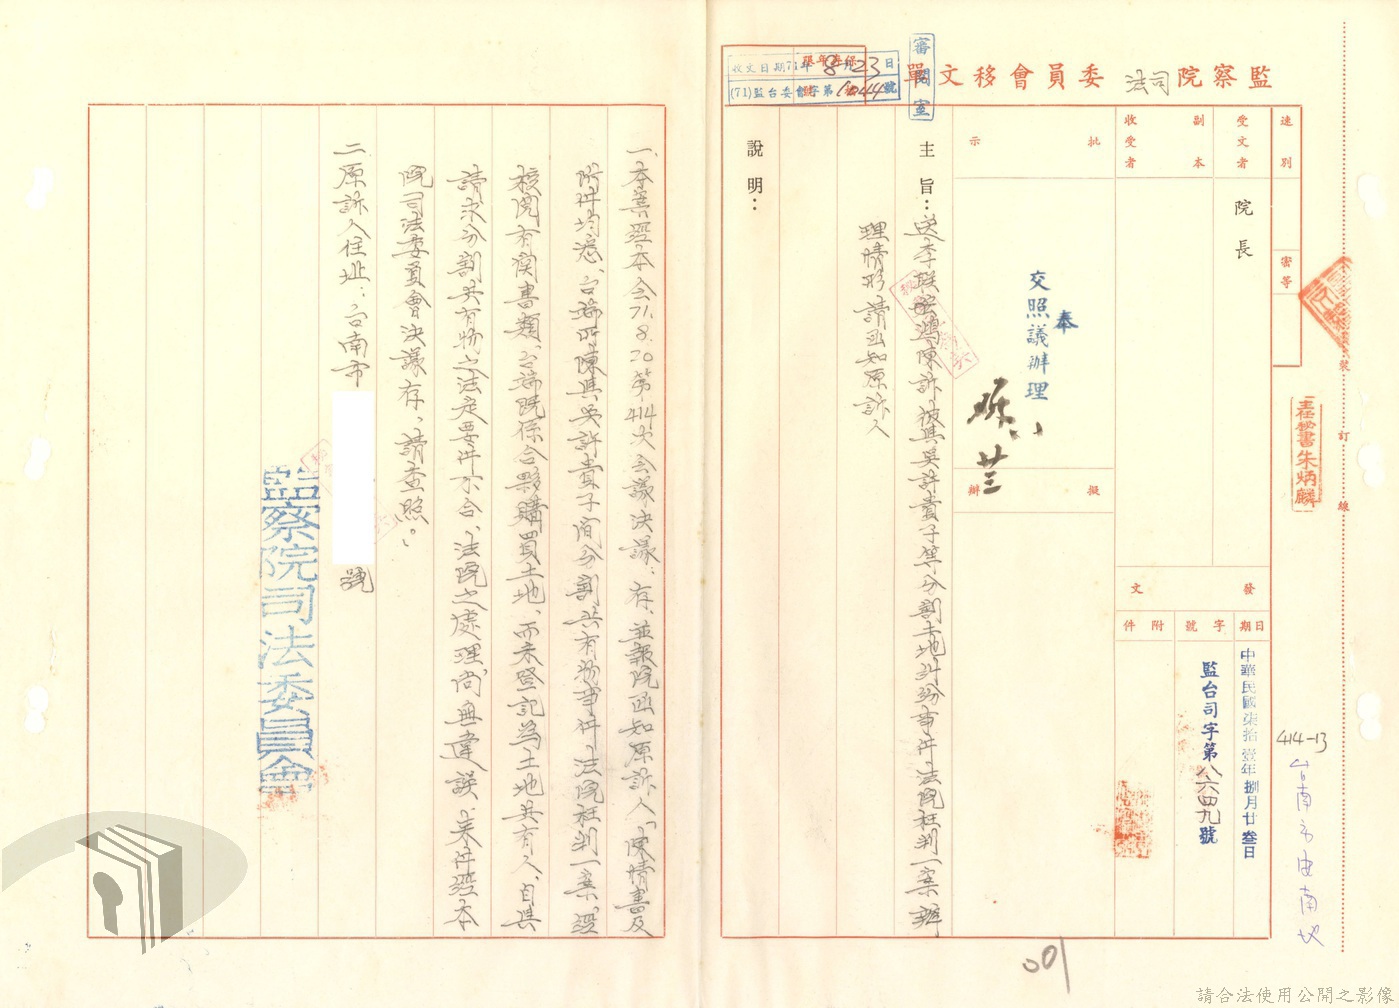 監察院司法委員會移文單
審閱室
收文日期71年8月23日
(71)監台委會字第 號
速別
密等
受文者
院長
副本
收受者
批示
奉
交照議辦理
擬辦
發文
日期
中華民國柒拾壹年捌月廿叁日
字號
監台司字第八六四九號
附件
主任秘書朱炳麟
裝
訂
線
414-13
台南市由南地
主旨：送李联宏鴻陳訴被與吳許貴子等分割土地糾紛事件法院枉判一案辦
理情形請函知原訴人
說明：
一、本案經本会71.8.20第414次会議決議：存、並報院函知原訴人「陳情書及
附件均悉、台端所陳與吳許貴子間分割共有物事件法院枉判一案、經
核院有関書類、台端既係合夥購買土地、而未登記為土地共有人、自與
請求分割共有物之法定要件不合、法院之處理尚無違誤、案件經本
院司法委員會決議存、請查照。」
二、原訴人住址：台南市
號
監察院司法委員會
001
請合法使用公開之影像